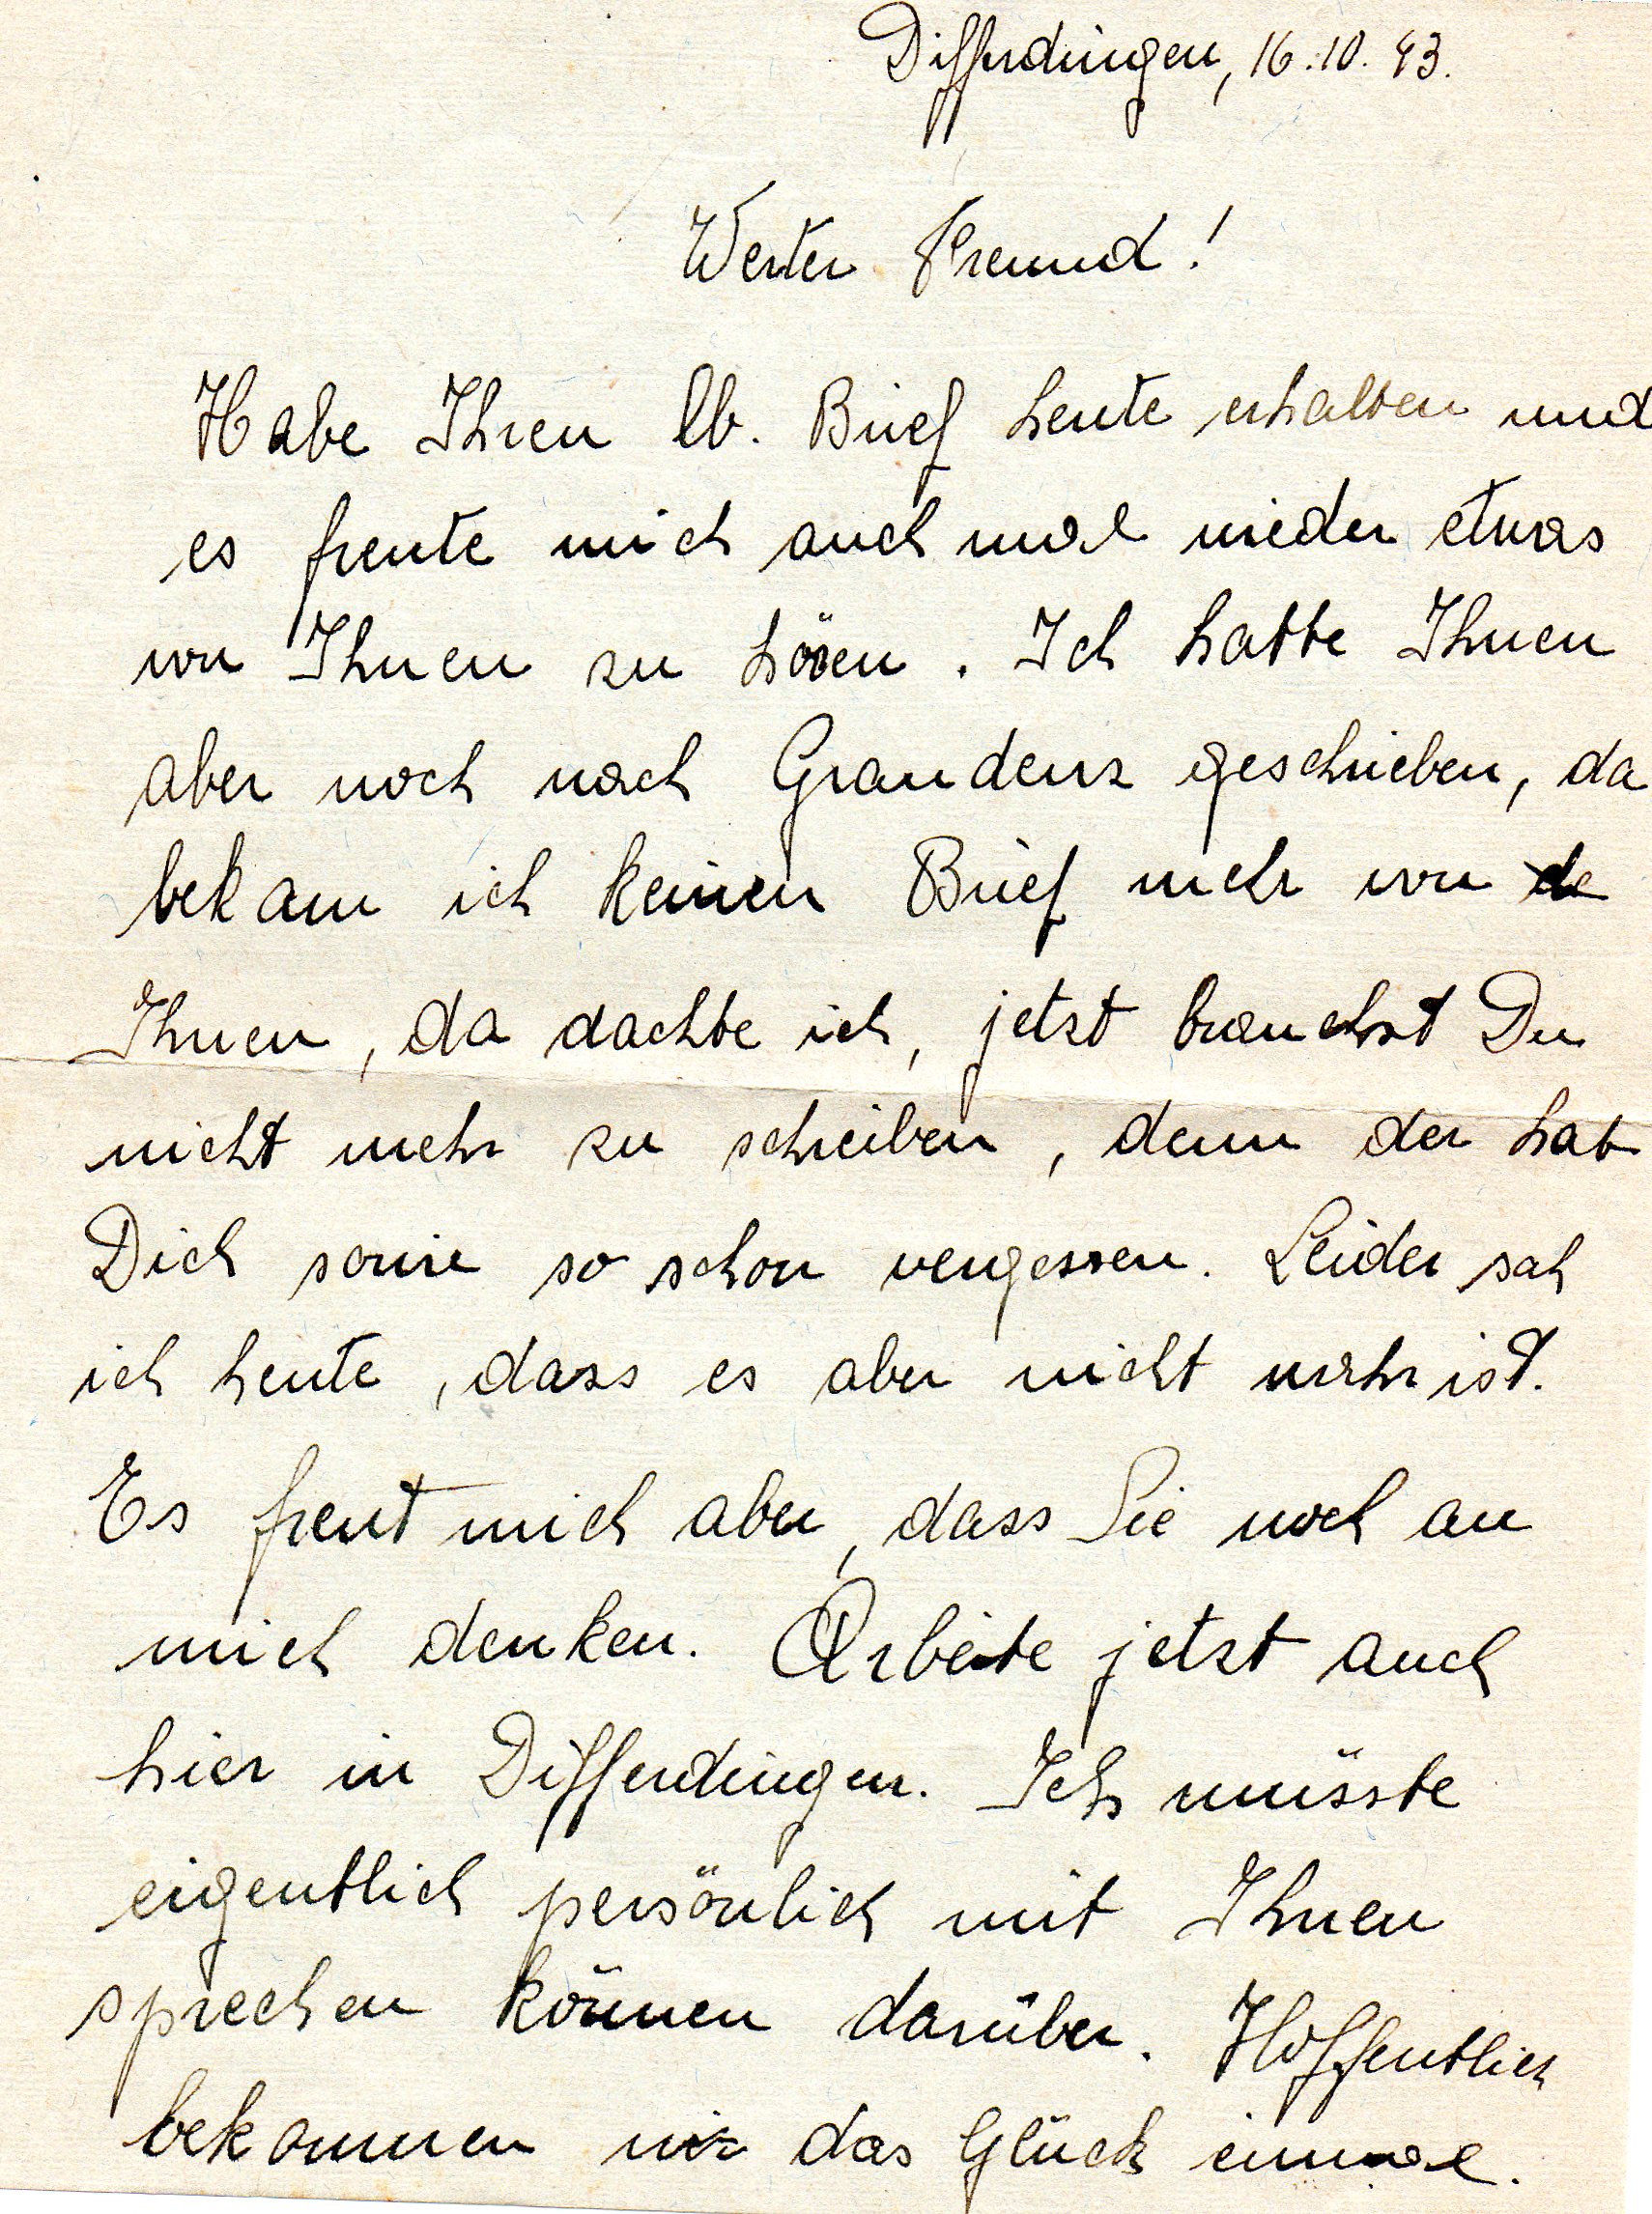 Differdingen, 16.10.43.
Werter Freund!
Habe Ihren lb. Brief heute erhalten und
es freute mich auch mal wieder etwas
von Ihnen zu hören. Ich hatte Ihnen
aber noch nach Graudenz geschrieben, da
bekam ich keinen Brief mehr von de
Ihnen, da dachte ich, jetzt brauchst Du
nicht mehr zu schreiben, denn der hat
Dich sowie so schon vergessen. Leider sah
ich heute, dass es aber nicht wahr ist.
Es freut mich aber, dass Sie noch an
mich denken. Arbeite jetzt auch
hier in Differdingen. Ich müsste
eigentlich persönlich mit Ihnen
sprechen können darüber. Hoffentlich
bekommen wir das Glück einmal.